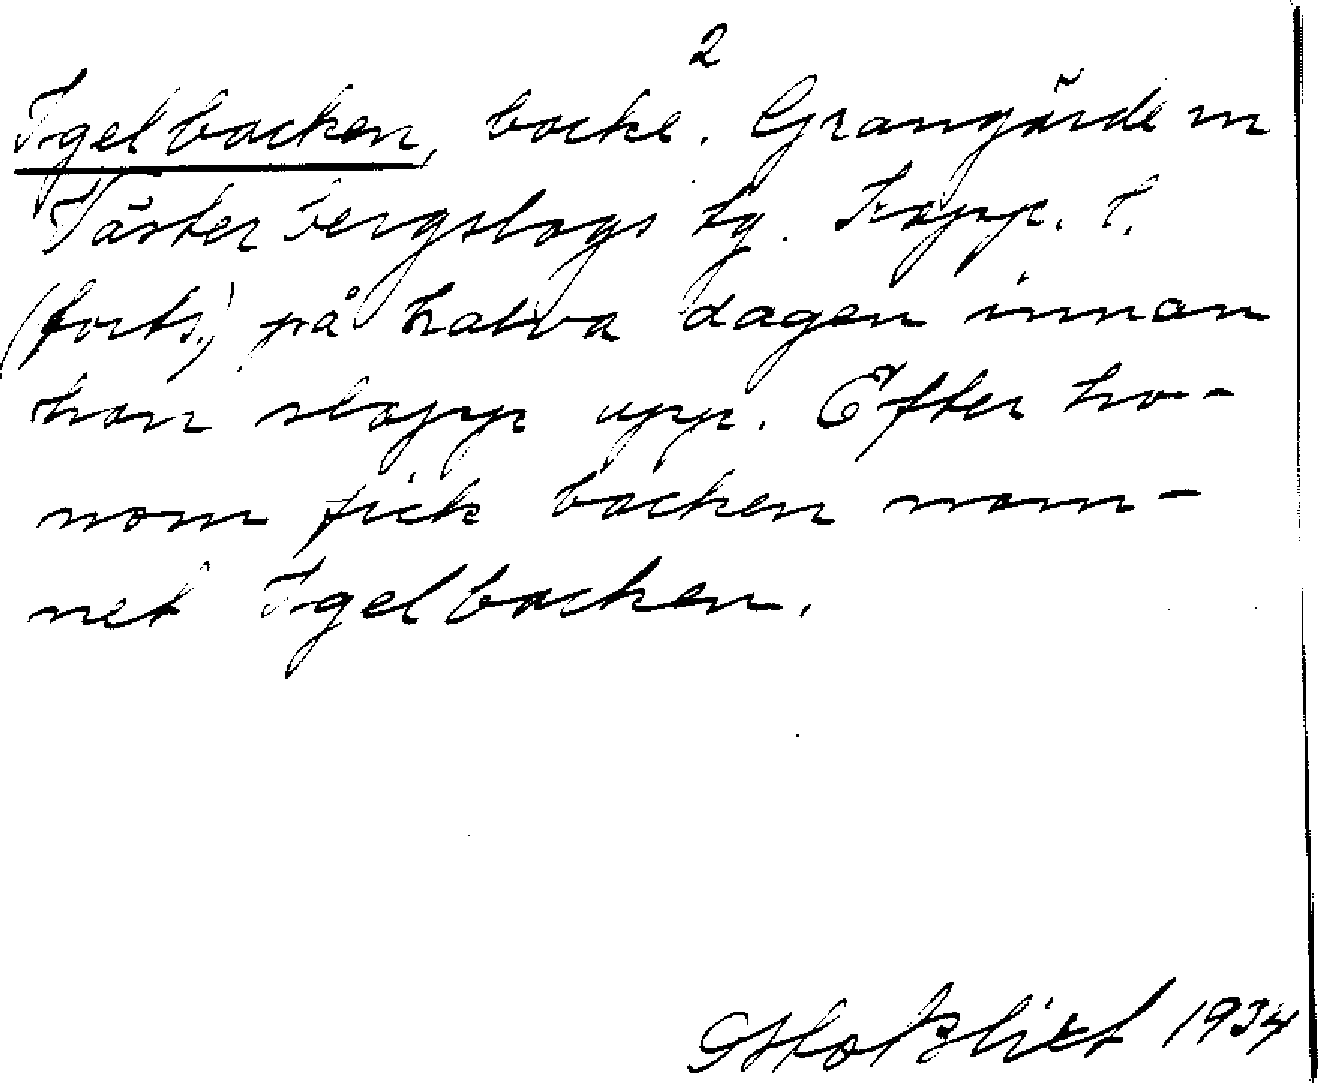 2
Igelbacken, backe. Grangärde sn
Västerbergslags tg. Kopp. l.
(forts.) på halva dagen innan
han slapp upp. Efter ho-
nom fick backen nam-
net Igelbacken.
1934